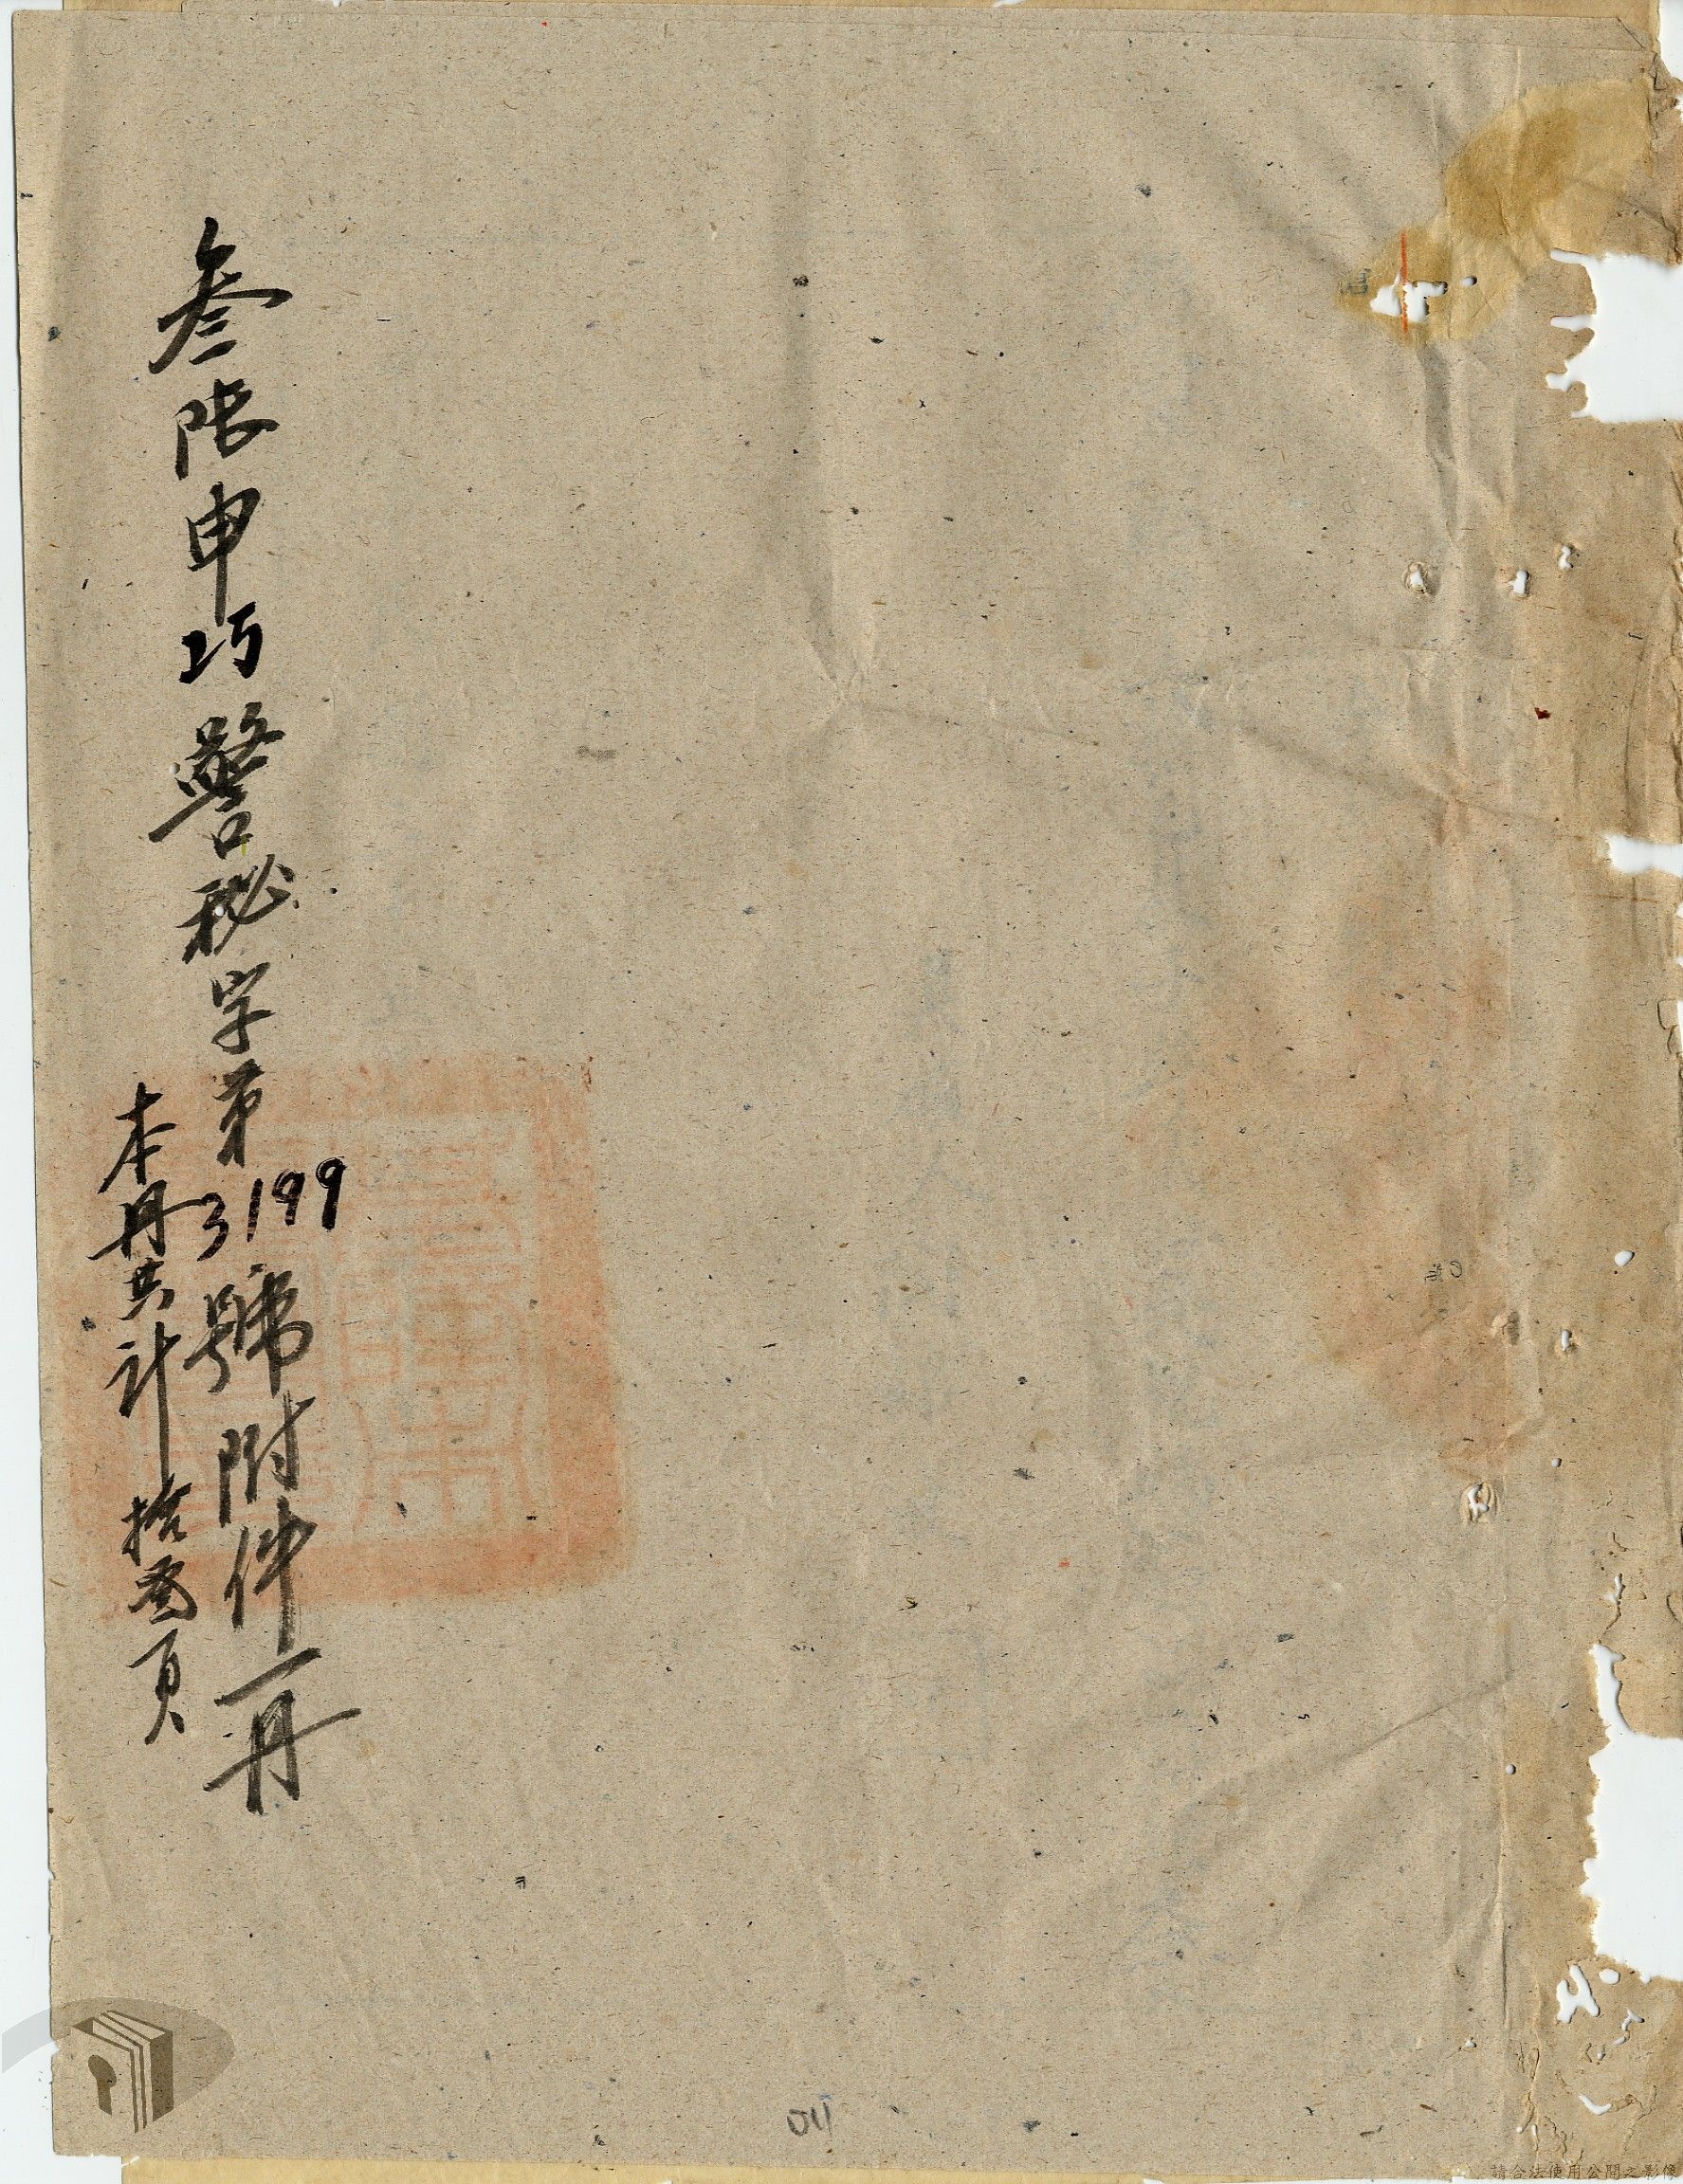 叁陸申巧警秘字第3199號附件一冊
本冊共計拾頁
011
請合法使用公開之影像